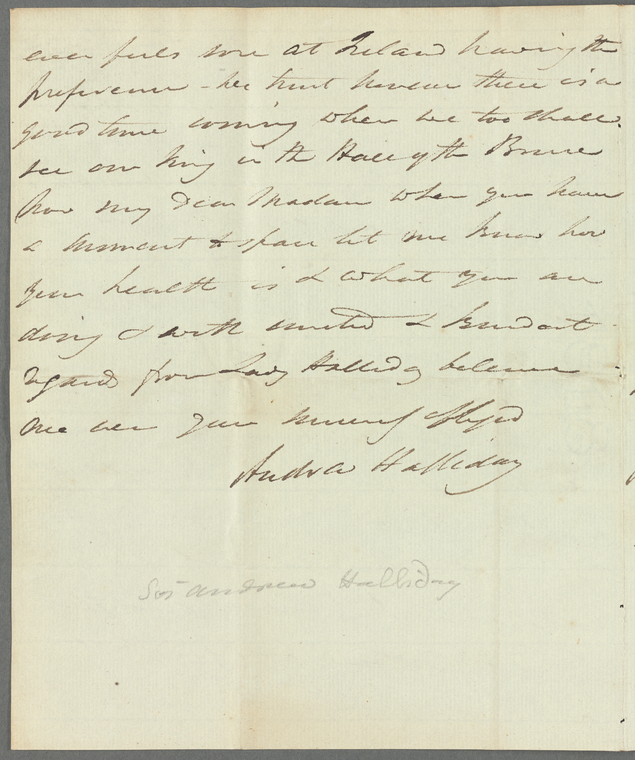 ever feels sore at Ireland having the
preference - we trust however there is a
good time coming when we too shall
see our King in the Hall of the Bruce
Now my dear Madam when you have
a moment to spare let me know how
your health is & what you are
doing & with united & kindest
regards from Lady Halliday believe
me ever your sincerely obliged
Andrew Halliday
Sir Andrew Halliday